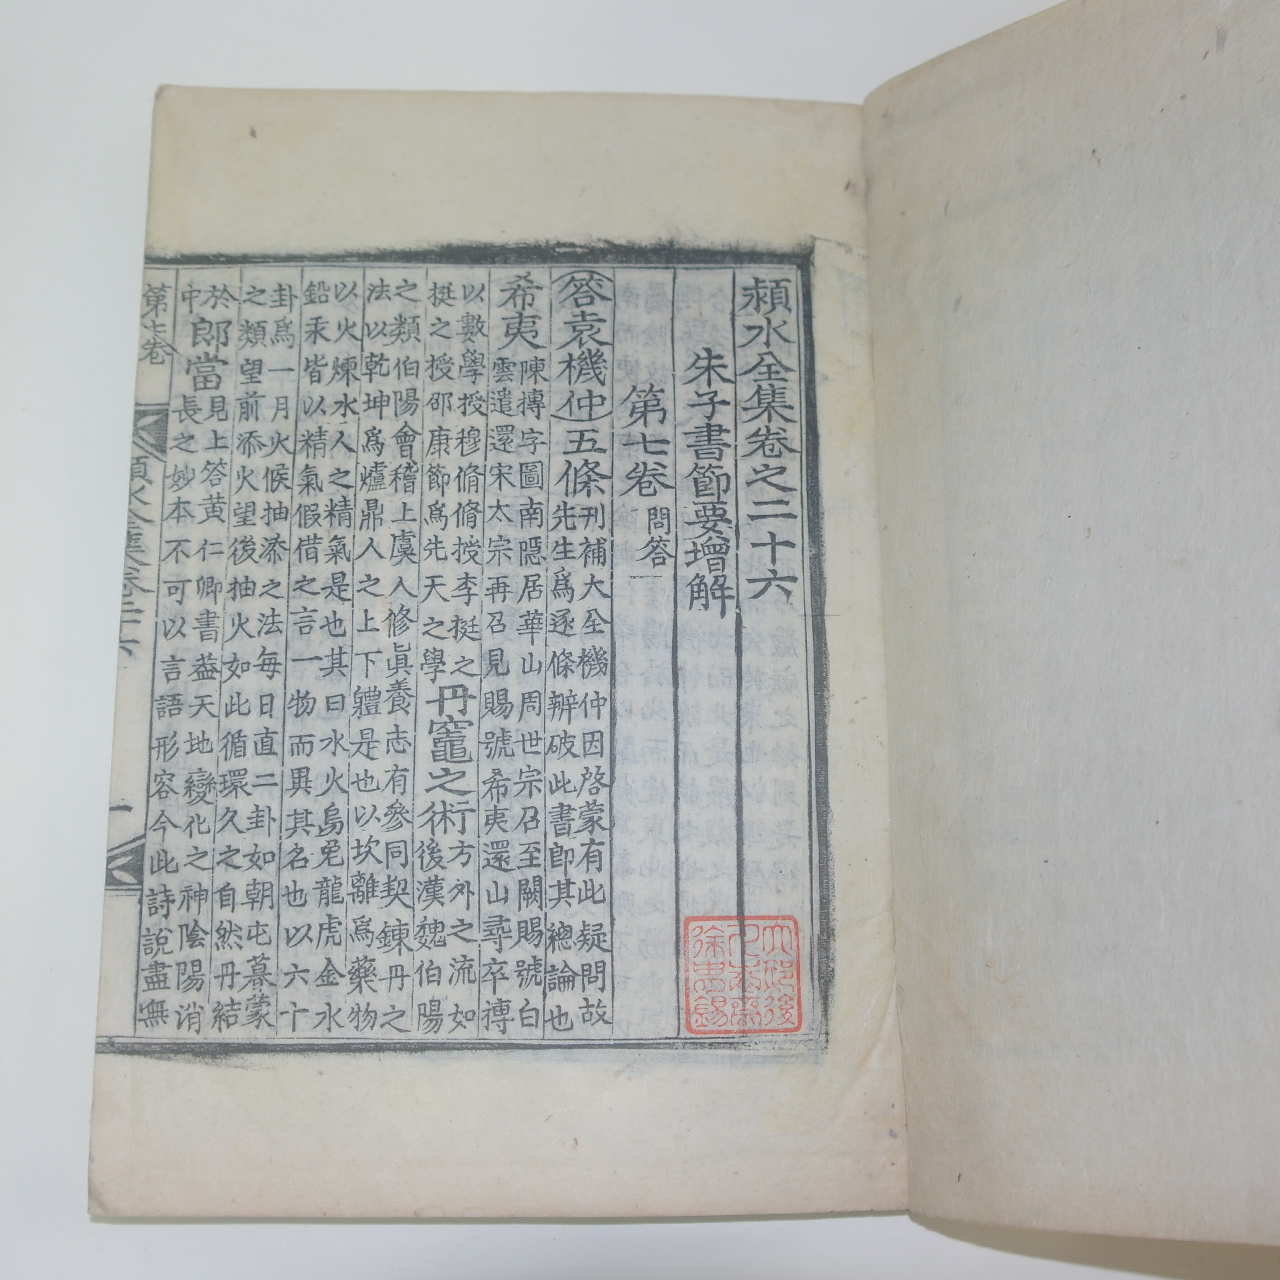 潁水全集卷之二十六
朱子書節要增解
第七卷 問答
答袁機仲 五條 刊補大全機仲因啓蒙有此疑問故
先生爲逐條辨破此書卽其總論也
希夷 陳摶字圖南隱居華山周世宗召至闕賜號白
雲遣還宋太宗再召見賜號希夷還山尋卒摶
以數學授穆脩脩授李挺之
挺之授邵康節爲先天之學 丹竈之術 方外之流如
後漢魏伯陽
之類伯陽會稽上虞人修眞養志有參同契鍊丹之
法以乾坤爲爐鼎人之上下體是也以坎離爲藥物
以火煉水人之精氣是也其曰水火烏兎龍虎金水
鉛汞皆以精氣假借之言一物而異其名也以六十
卦爲一月火候抽添之法每日直二卦如朝屯暮蒙
之類望前添火望後抽火如此循環久之自然丹結
於
中 郎當 見上答黃仁卿書 益天地變化之神陰陽消
長之妙本不可以言語形容今此詩說盡無
第七卷
潁水全集卷二十六
一
大邱後人
徐思錫